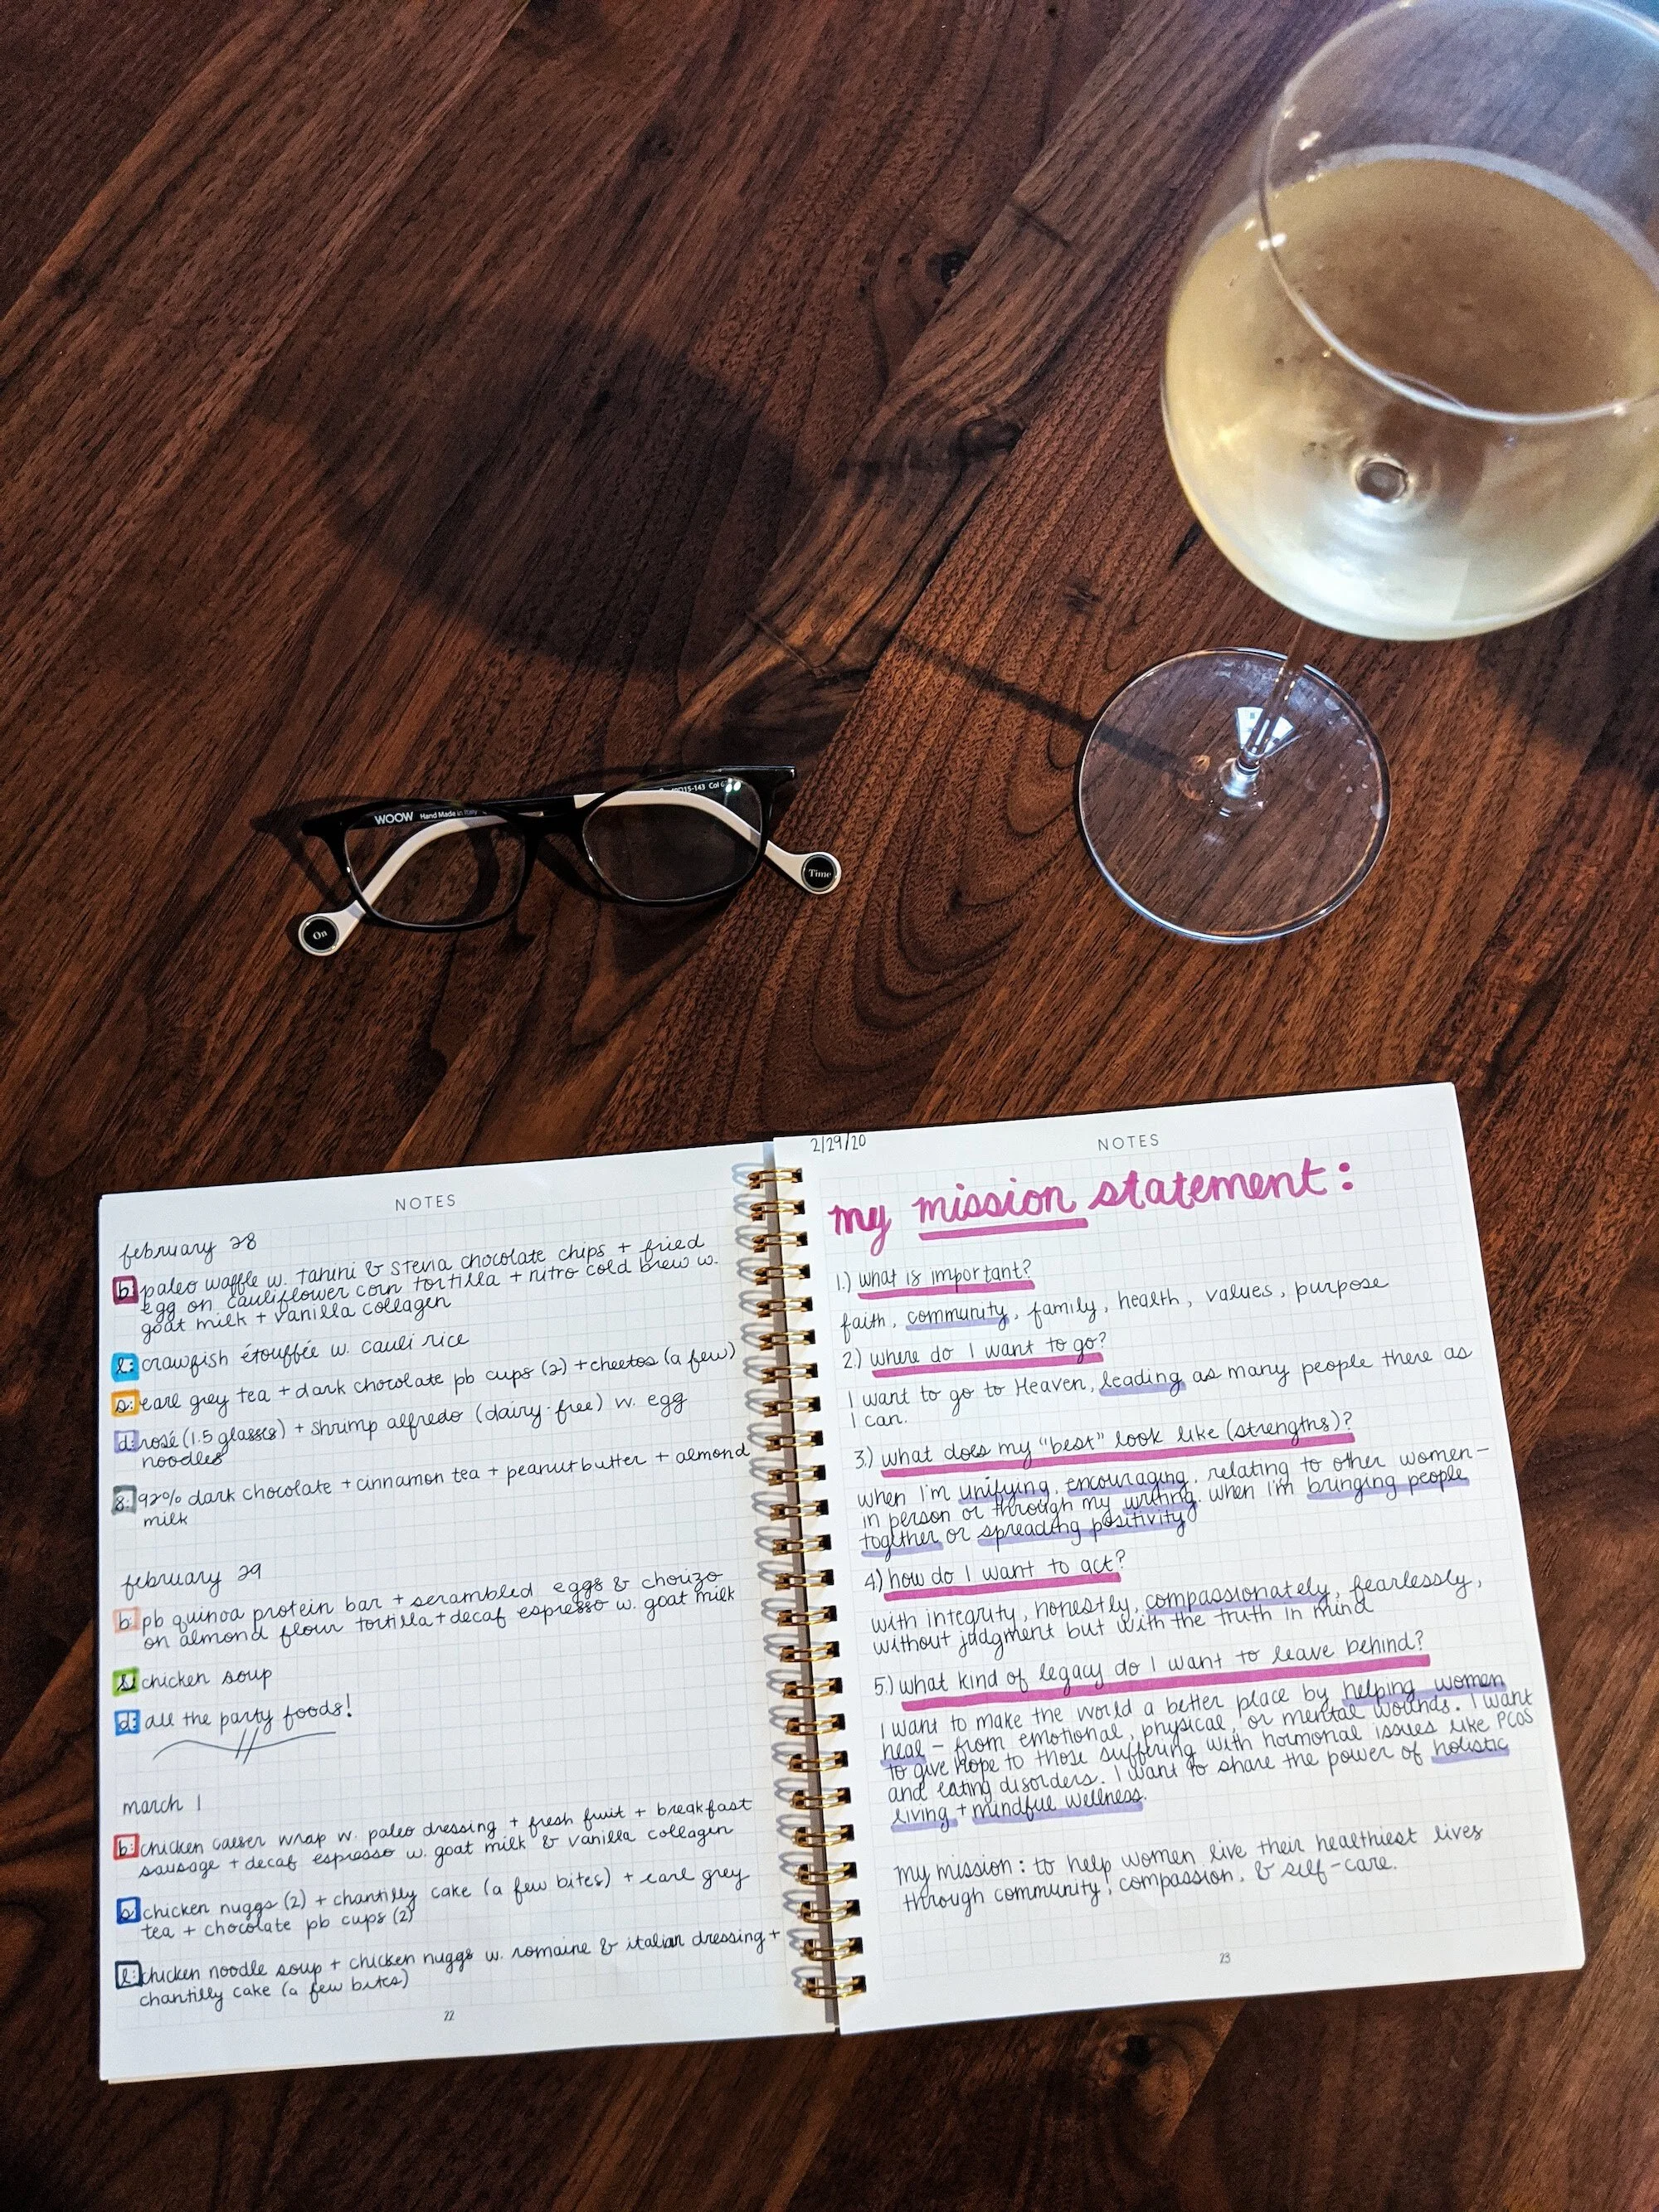 WOOW Hand Made in Italy
15-143 Col
On
Time
NOTES
february 28
b: paleo waffle w. tahini & stevia chocolate chips + fried
egg on cauliflower corn tortilla + nitro cold brew w.
goat milk + vanilla collagen
l: crawfish étouffée w. cauli rice
s: earl grey tea + dark chocolate pb cups (2) + cheetos (a few)
d: rosé (1.5 glasses) + shrimp alfredo (dairy-free) w. egg
noodles
s: 92% dark chocolate + cinnamon tea + peanut butter + almond
milk
february 29
b: pb quinoa protein bar + scrambled eggs & chorizo
on almond flour tortilla + decaf espresso w. goat milk
chicken soup
d: all the party foods!
march 1
b: chicken caeser wrap w. paleo dressing + fresh fruit + breakfast
sausage + decaf espresso w. goat milk & vanilla collagen
s: chicken nuggs (2) + chantilly cake (a few bites) + earl grey
tea + chocolate pb cups (2)
l: chicken noodle soup + chicken nuggs w. romaine & italian dressing +
chantilly cake (a few bites)
22
2/29/20
NOTES
my mission statement:
1.) what is important?
faith, community, family, health, values, purpose
2.) where do I want to go?
I want to go to Heaven, leading as many people there as
I can.
3.) what does my "best" look like (strengths)?
when I'm unifying, encouraging, relating to other women -
in person or through my writing. when I'm bringing people
together or spreading positivity
4) how do I want to act?
with integrity, honestly, compassionately, fearlessly,
without judgment but with the truth in mind
5.) what kind of legacy do I want to leave behind?
I want to make the world a better place by helping women
heal - from emotional, physical, or mental wounds. I want
to give hope to those suffering with hormonal issues like PCOS
and eating disorders. I want to share the power of holistic
living + mindful wellness.
my mission: to help women live their healthiest lives
through community, compassion, & self-care.
23